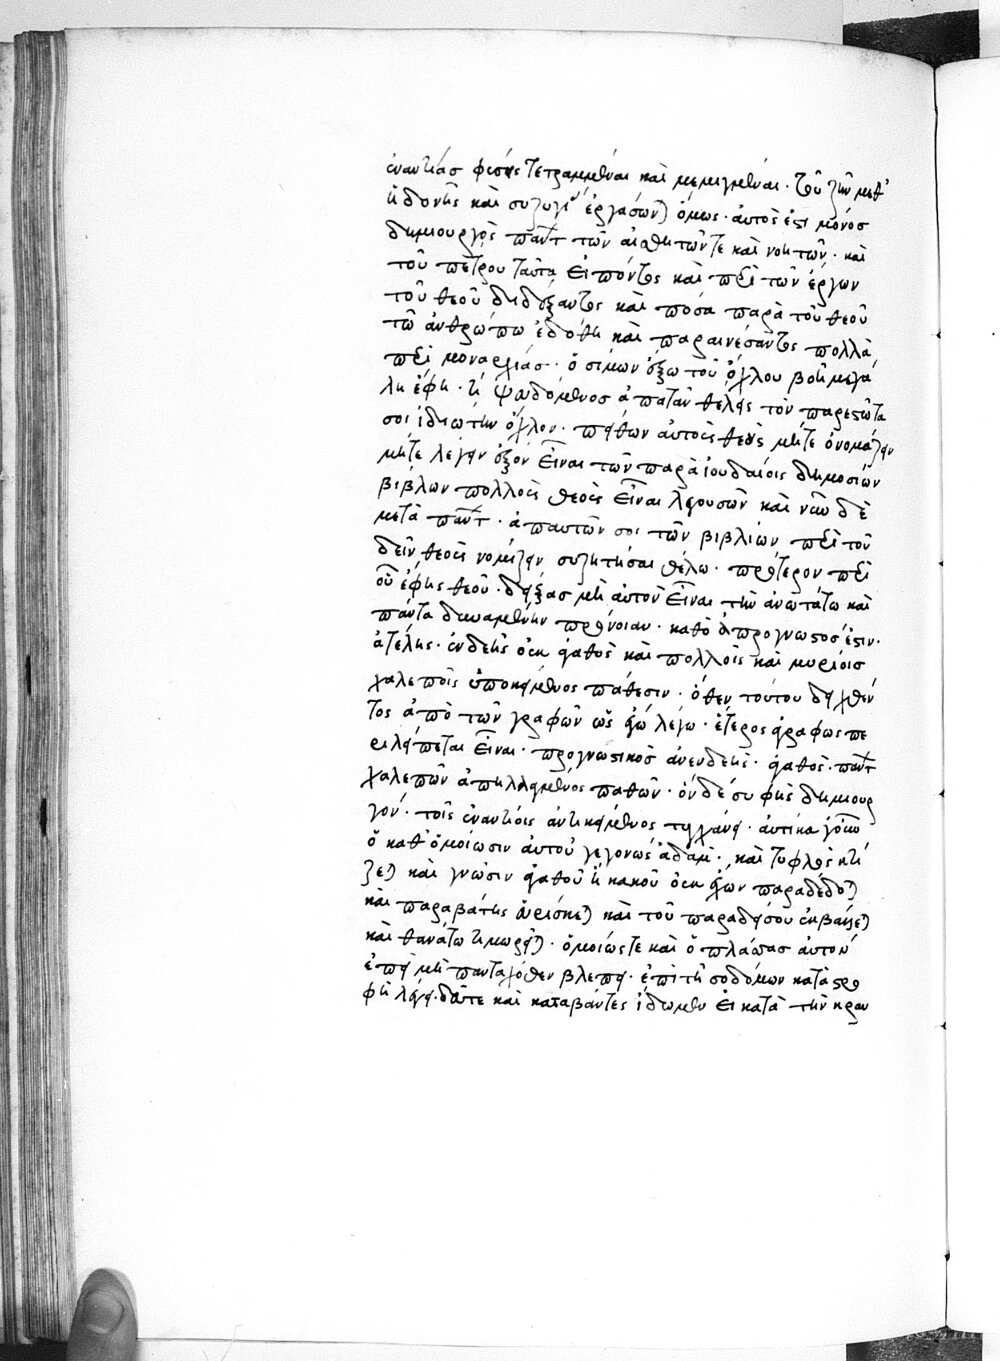 ἐναντίας φύσεις τετραμμέναι καὶ μεμιγμέναι. τοῦ ζῆν μεθ'
ἡδονῆς καὶ συζυγί ἐργάσων) ὅμως. αὐτὸς ἐστι μόνος
δημιουργὸς παντ τῶν αἰσθητῶν τε καὶ νοητῶν. καὶ
τοῦ πέτρου ταῦτα εἰπόντος καὶ περὶ τῶν ἔργων
τοῦ θεοῦ διδάξαντος καὶ πόσα παρὰ τοῦ θεοῦ
τῶ ἀνθρώπω ἐδόθη καὶ παραινέσαντος πολλὰ
περὶ μοναρχίας. ὁ σίμων ἔξω τοῦ ὄχλου βοῆ μεγά
λη ἔφη. τί ψευδόμενος ἀπατᾶν θέλεις τὸν παρεστῶτα
σοι ἰδιώτην ὄχλον. πείθων αὐτοὺς θεοὺς μήτε ὀνομάζειν
μήτε λέγειν ἐξὸν εἶναι τῶν παρὰ ἰουδαίοις δημοσίων
βίβλων πολλοὺς θεοὺς εἶναι λεγουσῶν καὶ νῦν δὲ
μετὰ παντ. ἀπ αυτῶν σοι τῶν βιβλίων περὶ τοῦ
δεῖν θεοὺς νομίζειν συζητῆσαι θέλω. πρότερον περὶ
οὗ ἔφης θεοῦ. δείξας μὴ αὐτὸν εἶναι τὴν ἀνωτάτω καὶ
πάντα δυναμένην πρόνοιαν. καθὸ ἀπρόγνωστος ἐστιν.
ἀτελής. ἐνδεὴς οὐκ ἀγαθὸς καὶ πολλοῖς καὶ μυρίοις
χαλεποῖς ὑποκείμενος πάθεσιν. ὅθεν τούτου δειχθέν
τος ἀπὸ τῶν γραφῶν ὡς ἐγὼ λέγω. ἕτερος ἀγράφως πε
ριλείπεται εἶναι. προγνωστικὸς ἀνενδεής. ἀγαθός. παντ
χαλεπῶν ἀπηλλαγμένος παθῶν. ὃν δὲ σὺ φὴς δημιουρ
γόν. τοῖς ἐναντίοις ἀντικείμενος τυγχάνει. αὐτίκα γοῦν
ὁ καθ' ὁμοίωσιν αὐτοῦ γεγονὼς ἀδάμ. καὶ τυφλὸς κτί
ζε) καὶ γνῶσιν ἀγαθοῦ ἢ κακοῦ οὐκ ἔχων παραδέδο)
καὶ παραβάτης εὑρίσκε) καὶ τοῦ παραδείσου ἐκβάλλε)
καὶ θανάτω τιμωρεῖ). ὁμοίως τε καὶ ὁ πλάσας αὐτὸν
ἐπεὶ μὴ πανταχόθεν βλέπει. ἐπὶ τῆ σοδόμων καταστρο
φῆ λέγει. δεῦτε καὶ καταβάντες ἴδωμεν εἰ κατὰ τὴν κραυ